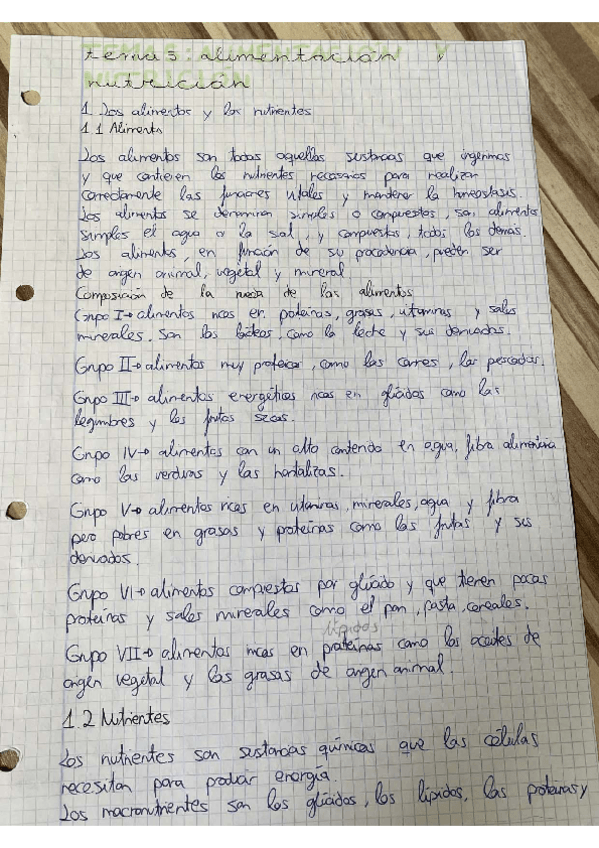 tema 5: alimentación y
nutrición
1 Los alimentos y los nutrientes
1.1 Alimento
Los alimentos son todas aquellas sustancias que ingerimos
y que contienen los nutrientes necesarios para realizar
correctamente las funciones vitales y mantener la homeostasis.
Los alimentos se denominan simples o compuestos, son alimentos
simples el agua o la sal, y compuestos, todos los demás.
Los alimentos, en función de su procedencia, pueden ser
de origen animal, vegetal y mineral
Composición de la rueda de los alimentos
Grupo I→ alimentos ricos en proteínas, grasas, vitaminas y sales
minerales. Son los lácteos, como la leche y sus derivados.
Grupo II→ alimentos muy proteicos, como las carnes, los pescados.
Grupo III→ alimentos energéticos ricos en glúcidos como las
legumbres y los frutos secos.
Grupo IV→ alimentos con un alto contenido en agua, fibra alimentaria
como las verduras y las hortalizas.
Grupo V→ alimentos ricos en vitaminas, minerales, agua y fibra
pero pobres en grasas y proteínas como las frutas y sus
derivados.
Grupo VI→ alimentos compuestos por glúcido y que tienen pocas
proteínas y sales minerales como el pan, pasta, cereales.
lípidos
Grupo VII→ alimentos ricos en proteínas como los aceites de
origen vegetal y las grasas de origen animal.
1.2 Nutrientes
Los nutrientes son sustancias químicas que las células
necesitan para producir energía.
Los macronutrientes son los glúcidos, los lípidos, las proteínas y